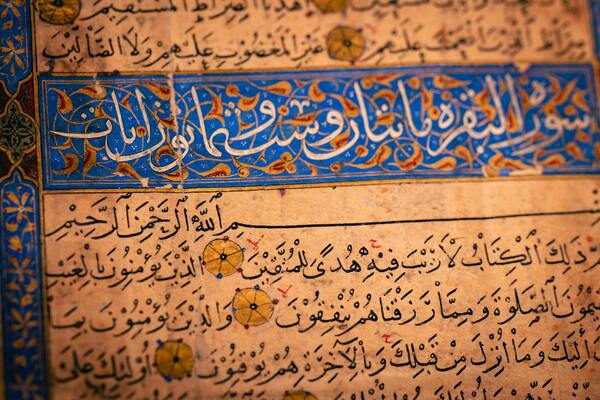 الصِّرَاطَ الْمُسْتَقِيمَ
صِرَاطَ الَّذِينَ أَنْعَمْتَ عَلَيْهِمْ غَيْرِ الْمَغْضُوبِ عَلَيْهِمْ وَلَا الضَّالِّينَ
سورة البقرة مايتان وست وثمانون ايات
اللَّهِ الرَّحْمَنِ الرَّحِيمِ
ذَلِكَ الْكِتَابُ لَا رَيْبَ فِيهِ هُدًى لِلْمُتَّقِينَ الَّذِينَ يُؤْمِنُونَ بِالْغَيْبِ
يمُونَ الصَّلَوةَ وَمِمَّا رَزَقْنَاهُمْ يُنْفِقُونَ وَالَّذِينَ يُؤْمِنُونَ بِمَا
إِلَيْكَ وَمَا أُنْزِلَ مِنْ قَبْلِكَ وَبِالْآخِرَةِ هُمْ يُوقِنُونَ أُولَئِكَ عَلَى